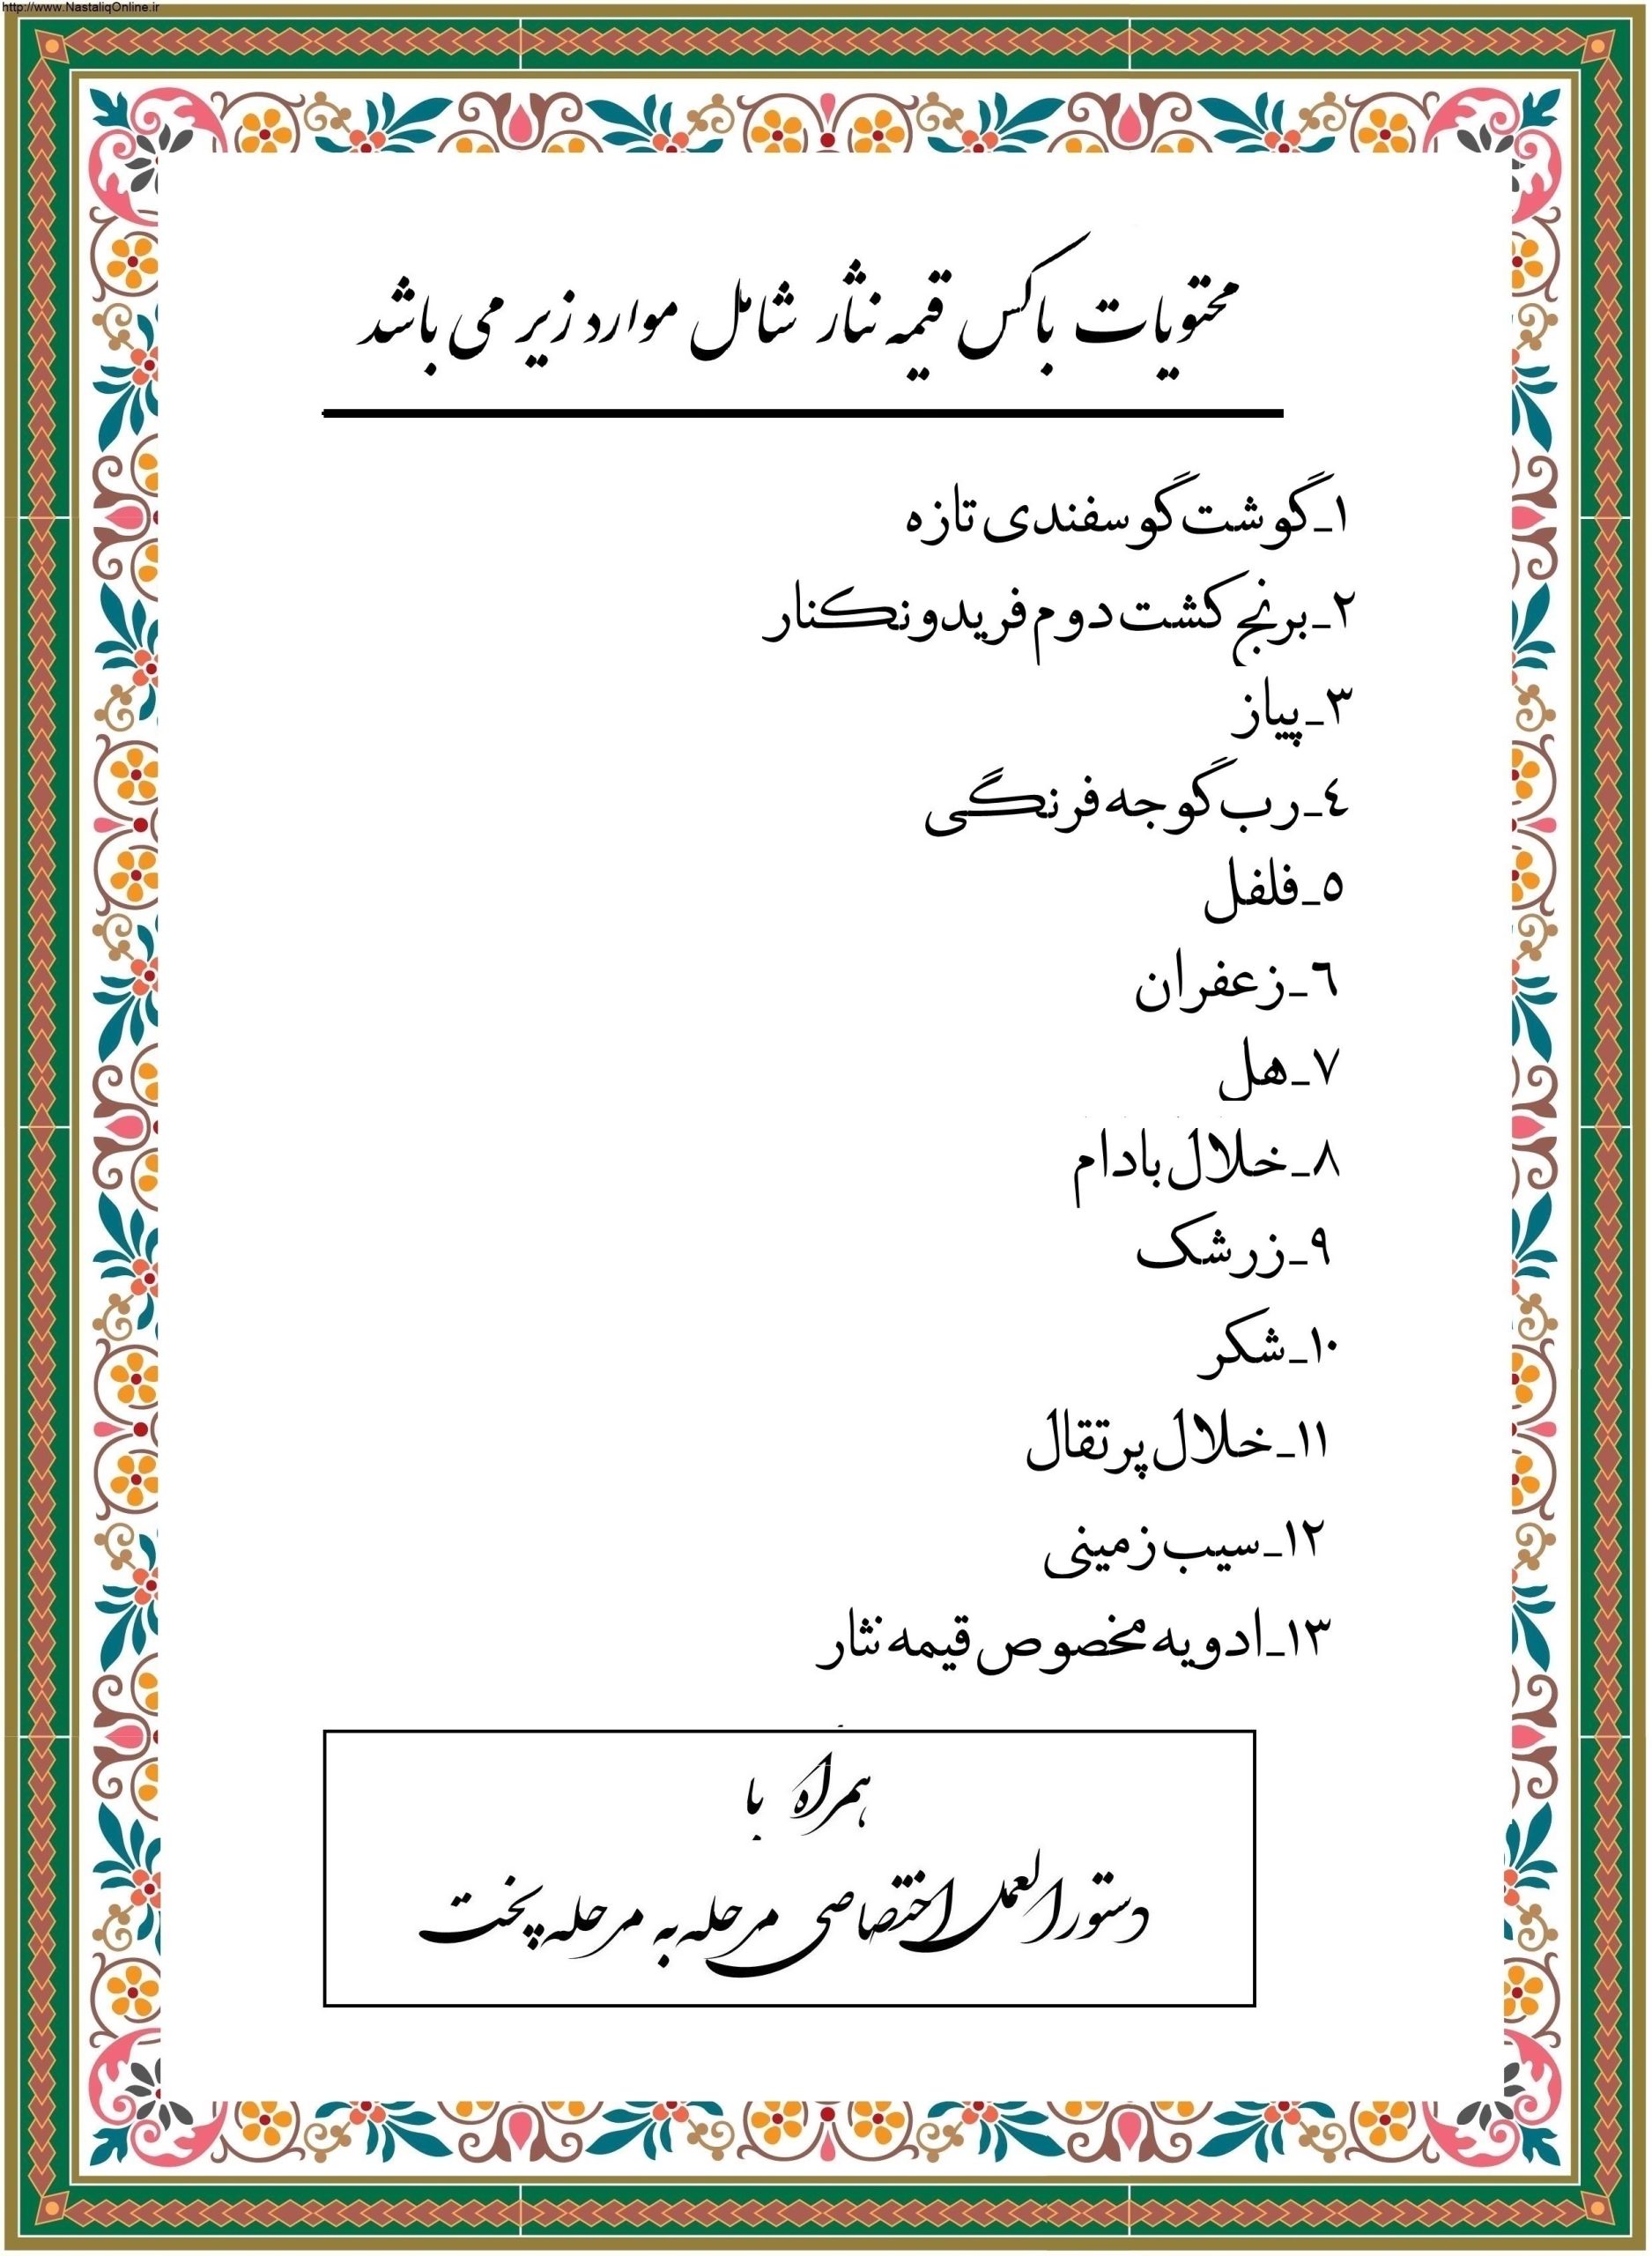 http://www.NastaliqOnline.ir
محتویات باکس قیمه نثار شامل موارد زیر می باشد
۱_گوشت گوسفندی تازه
۲_برنج کشت دوم فریدونکنار
۳_پیاز
٤_رب گوجه فرنگی
٥_فلفل
٦_زعفران
۷_هل
۸_خلال بادام
۹_زرشک
۱۰_شکر
۱۱_خلال پرتقال
۱۲_سیب زمینی
۱۳_ادویه مخصوص قیمه نثار
همراه با
دستورالعمل اختصاصی مرحله به مرحله پخت